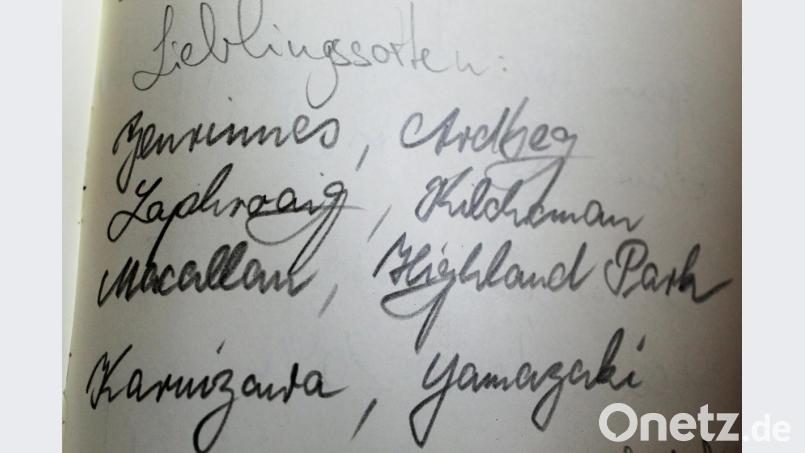 Lieblingssorten:
Benrinnes, Ardbeg
Laphroaig, Kilchoman
Macallan, Highland Park
Karuizawa, Yamazaki
Onetz.de